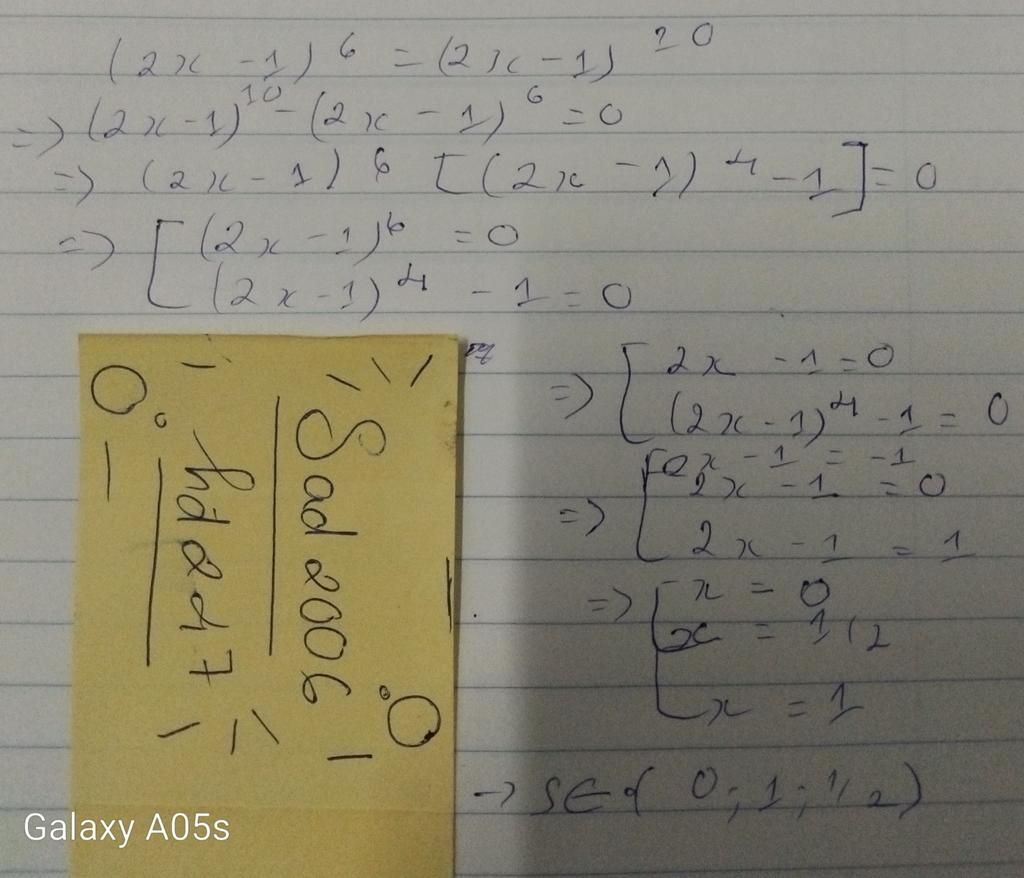 (2x - 1)^6 = (2x - 1)^10
=> (2x - 1)^10 - (2x - 1)^6 = 0
=> (2x - 1)^6 [(2x - 1)^4 - 1] = 0
=> [ (2x - 1)^6 = 0
(2x - 1)^4 - 1 = 0
=> [ 2x - 1 = 0
(2x - 1)^4 - 1 = 0
2x - 1 = -1
=> [ 2x - 1 = 0
2x - 1 = 1
=> [ x = 0
x = 1/2
x = 1
-> S ∈ { 0; 1; 1/2 )
Sad 2006
hd 247
Galaxy A05s